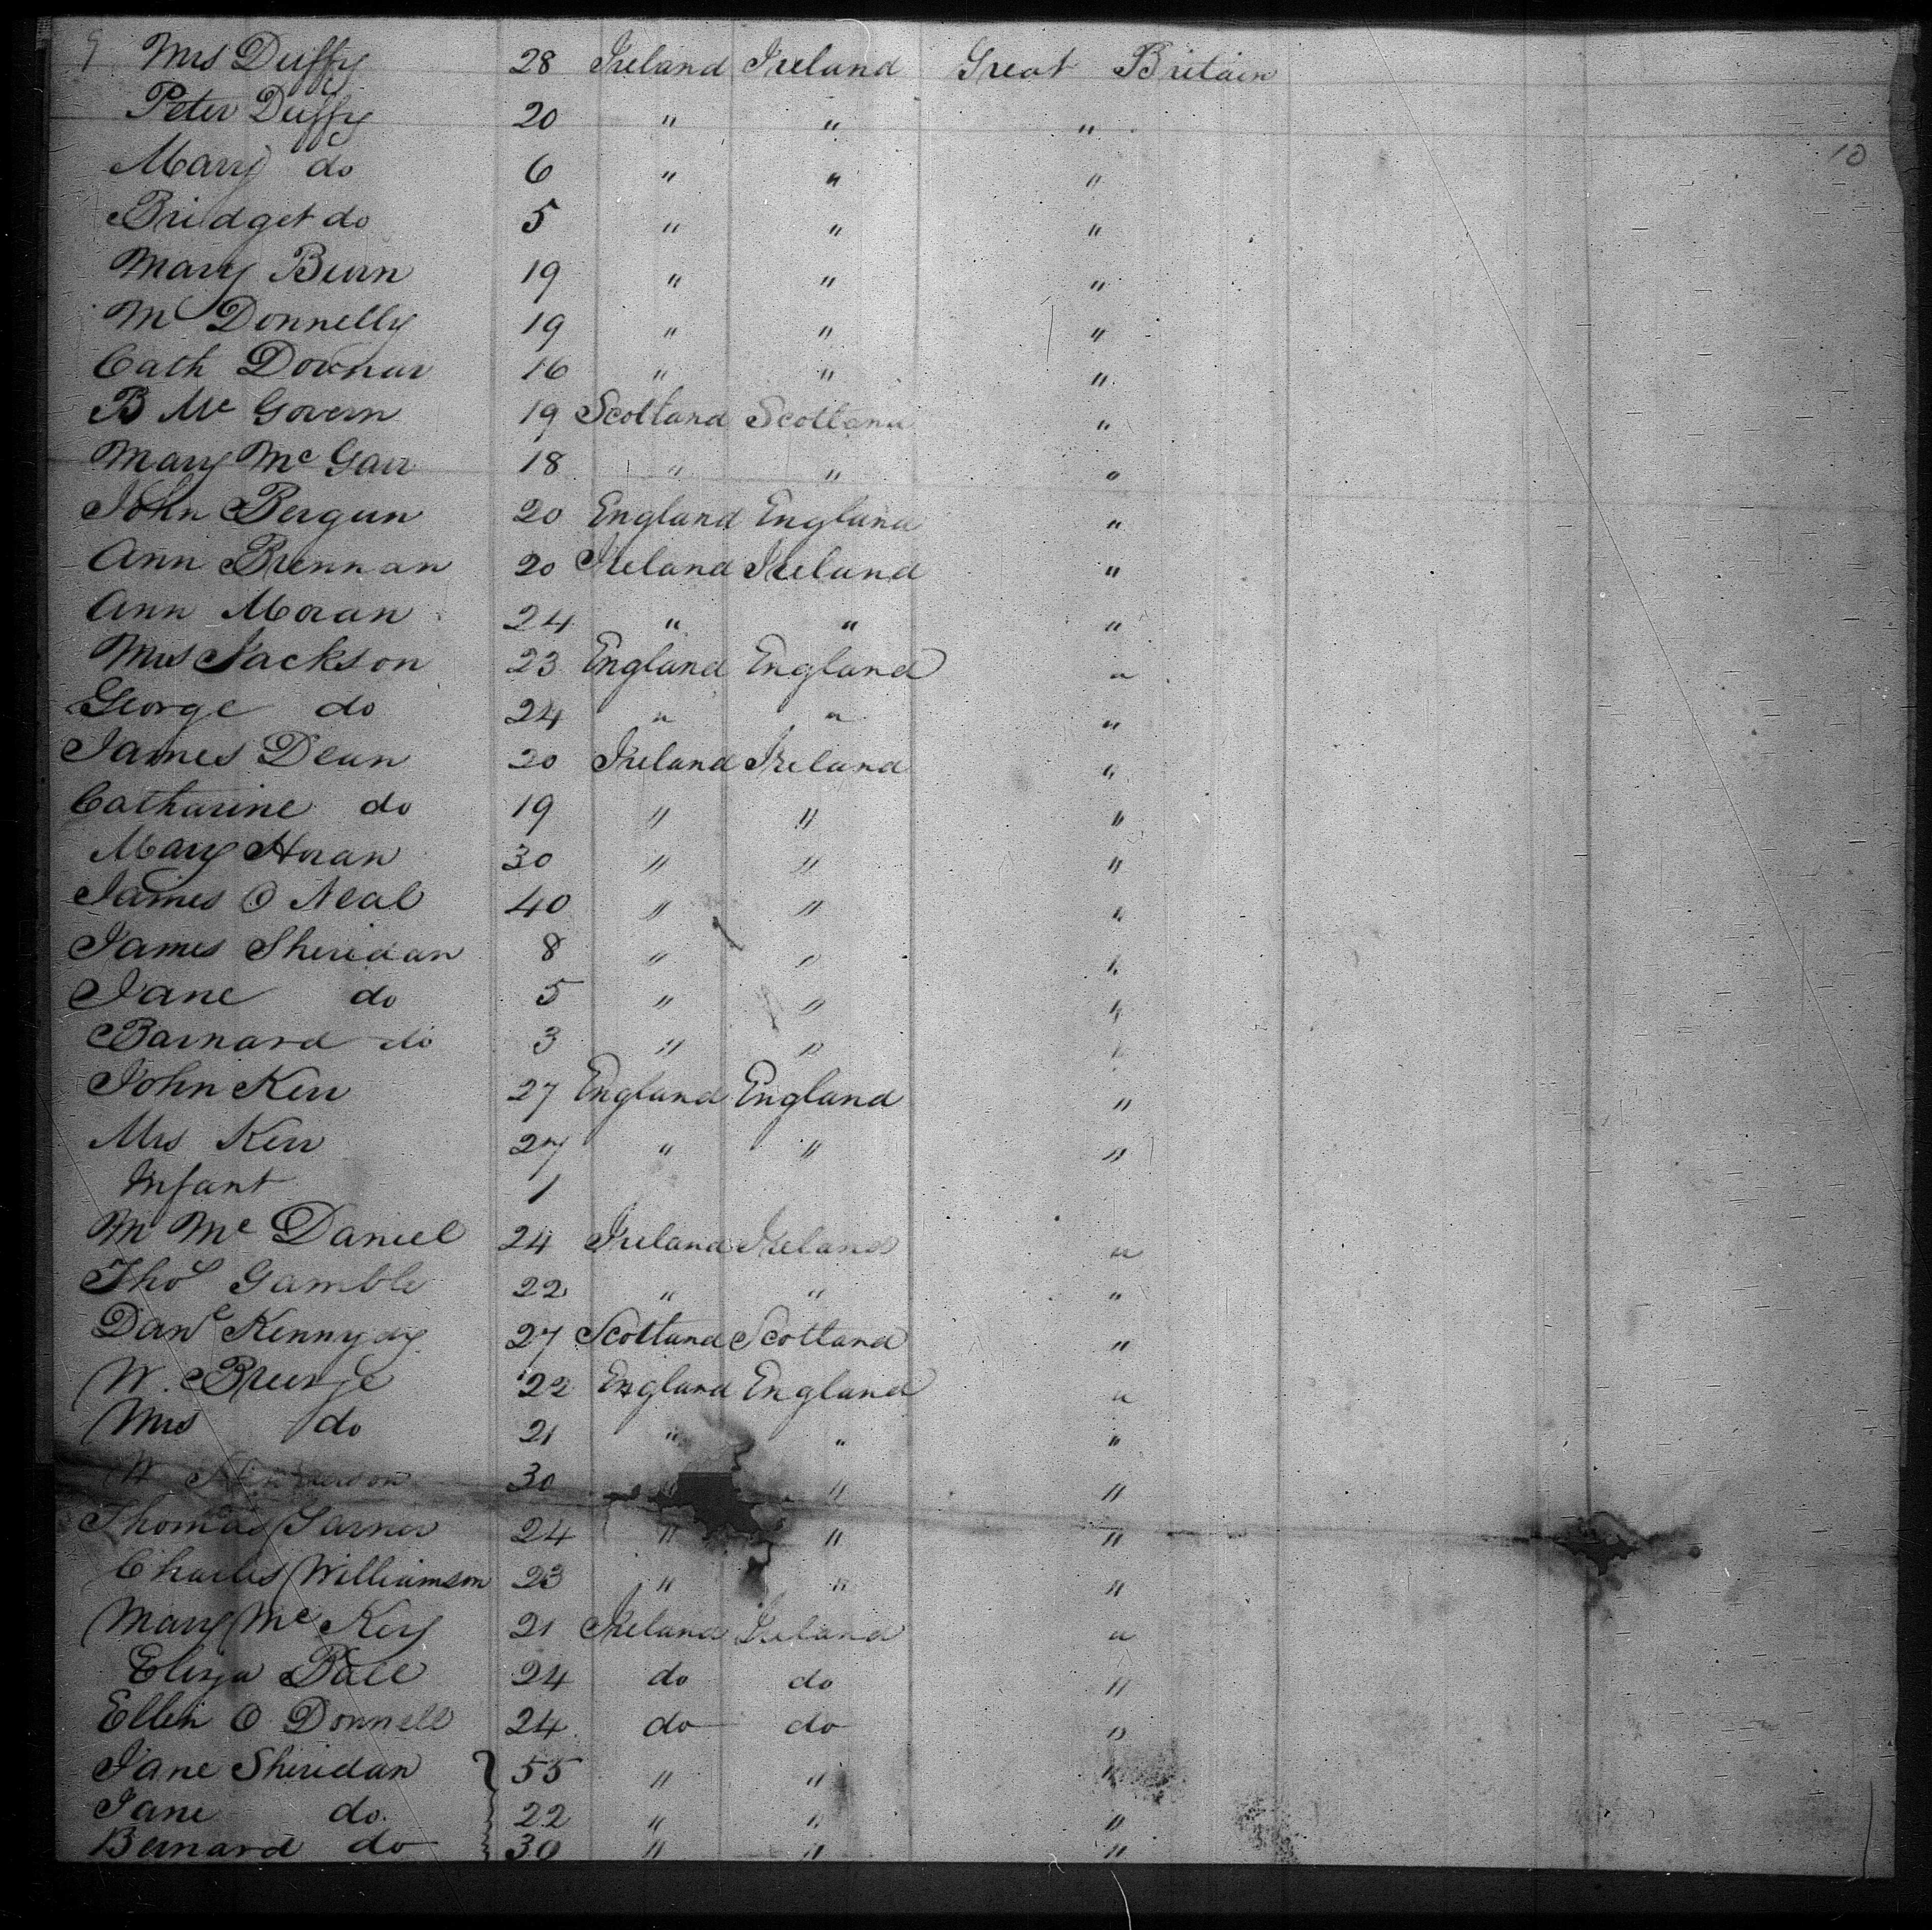 9 Mrs Duffy 28 Ireland Ireland Great Britain
Peter Duffy 20 " " "
10
Mary do 6 " " "
Bridget do 5 " " "
Mary Burn 19 " " "
M Donnelly 19 " " "
Cath Downar 16 " " "
B Mc Govern 19 Scotland Scotland "
Mary Mc Garr 18 " " "
John Bergun 20 England England "
Ann Brennan 20 Ireland Ireland "
Ann Moran 24 " " "
Mrs Jackson 23 England England "
George do 24 " " "
James Dean 20 Ireland Ireland "
Catharine do 19 " " "
Mary Horan 30 " " "
James O Neal 40 " " "
James Sheridan 8 " " "
Jane do 5 " " "
Barnard do 3 " " "
John Kerr 27 England England "
Mrs Kerr 27 " " "
Infant 1
M Mc Daniel 24 Ireland Ireland "
Thos Gamble 22 " " "
Danl Kennydy 27 Scotland Scotland "
W. 22 England England "
Mrs do 21 " " "
W 30 " " "
Thomas 24 " " "
Charles Williamson 23 " " "
Mary Mc Key 21 Ireland Ireland "
Eliza 24 do do "
Ellen O Donnell 24 do do "
Jane Sheridan } 55 " " "
Jane do } 22 " " "
Bernard do } 30 " " "